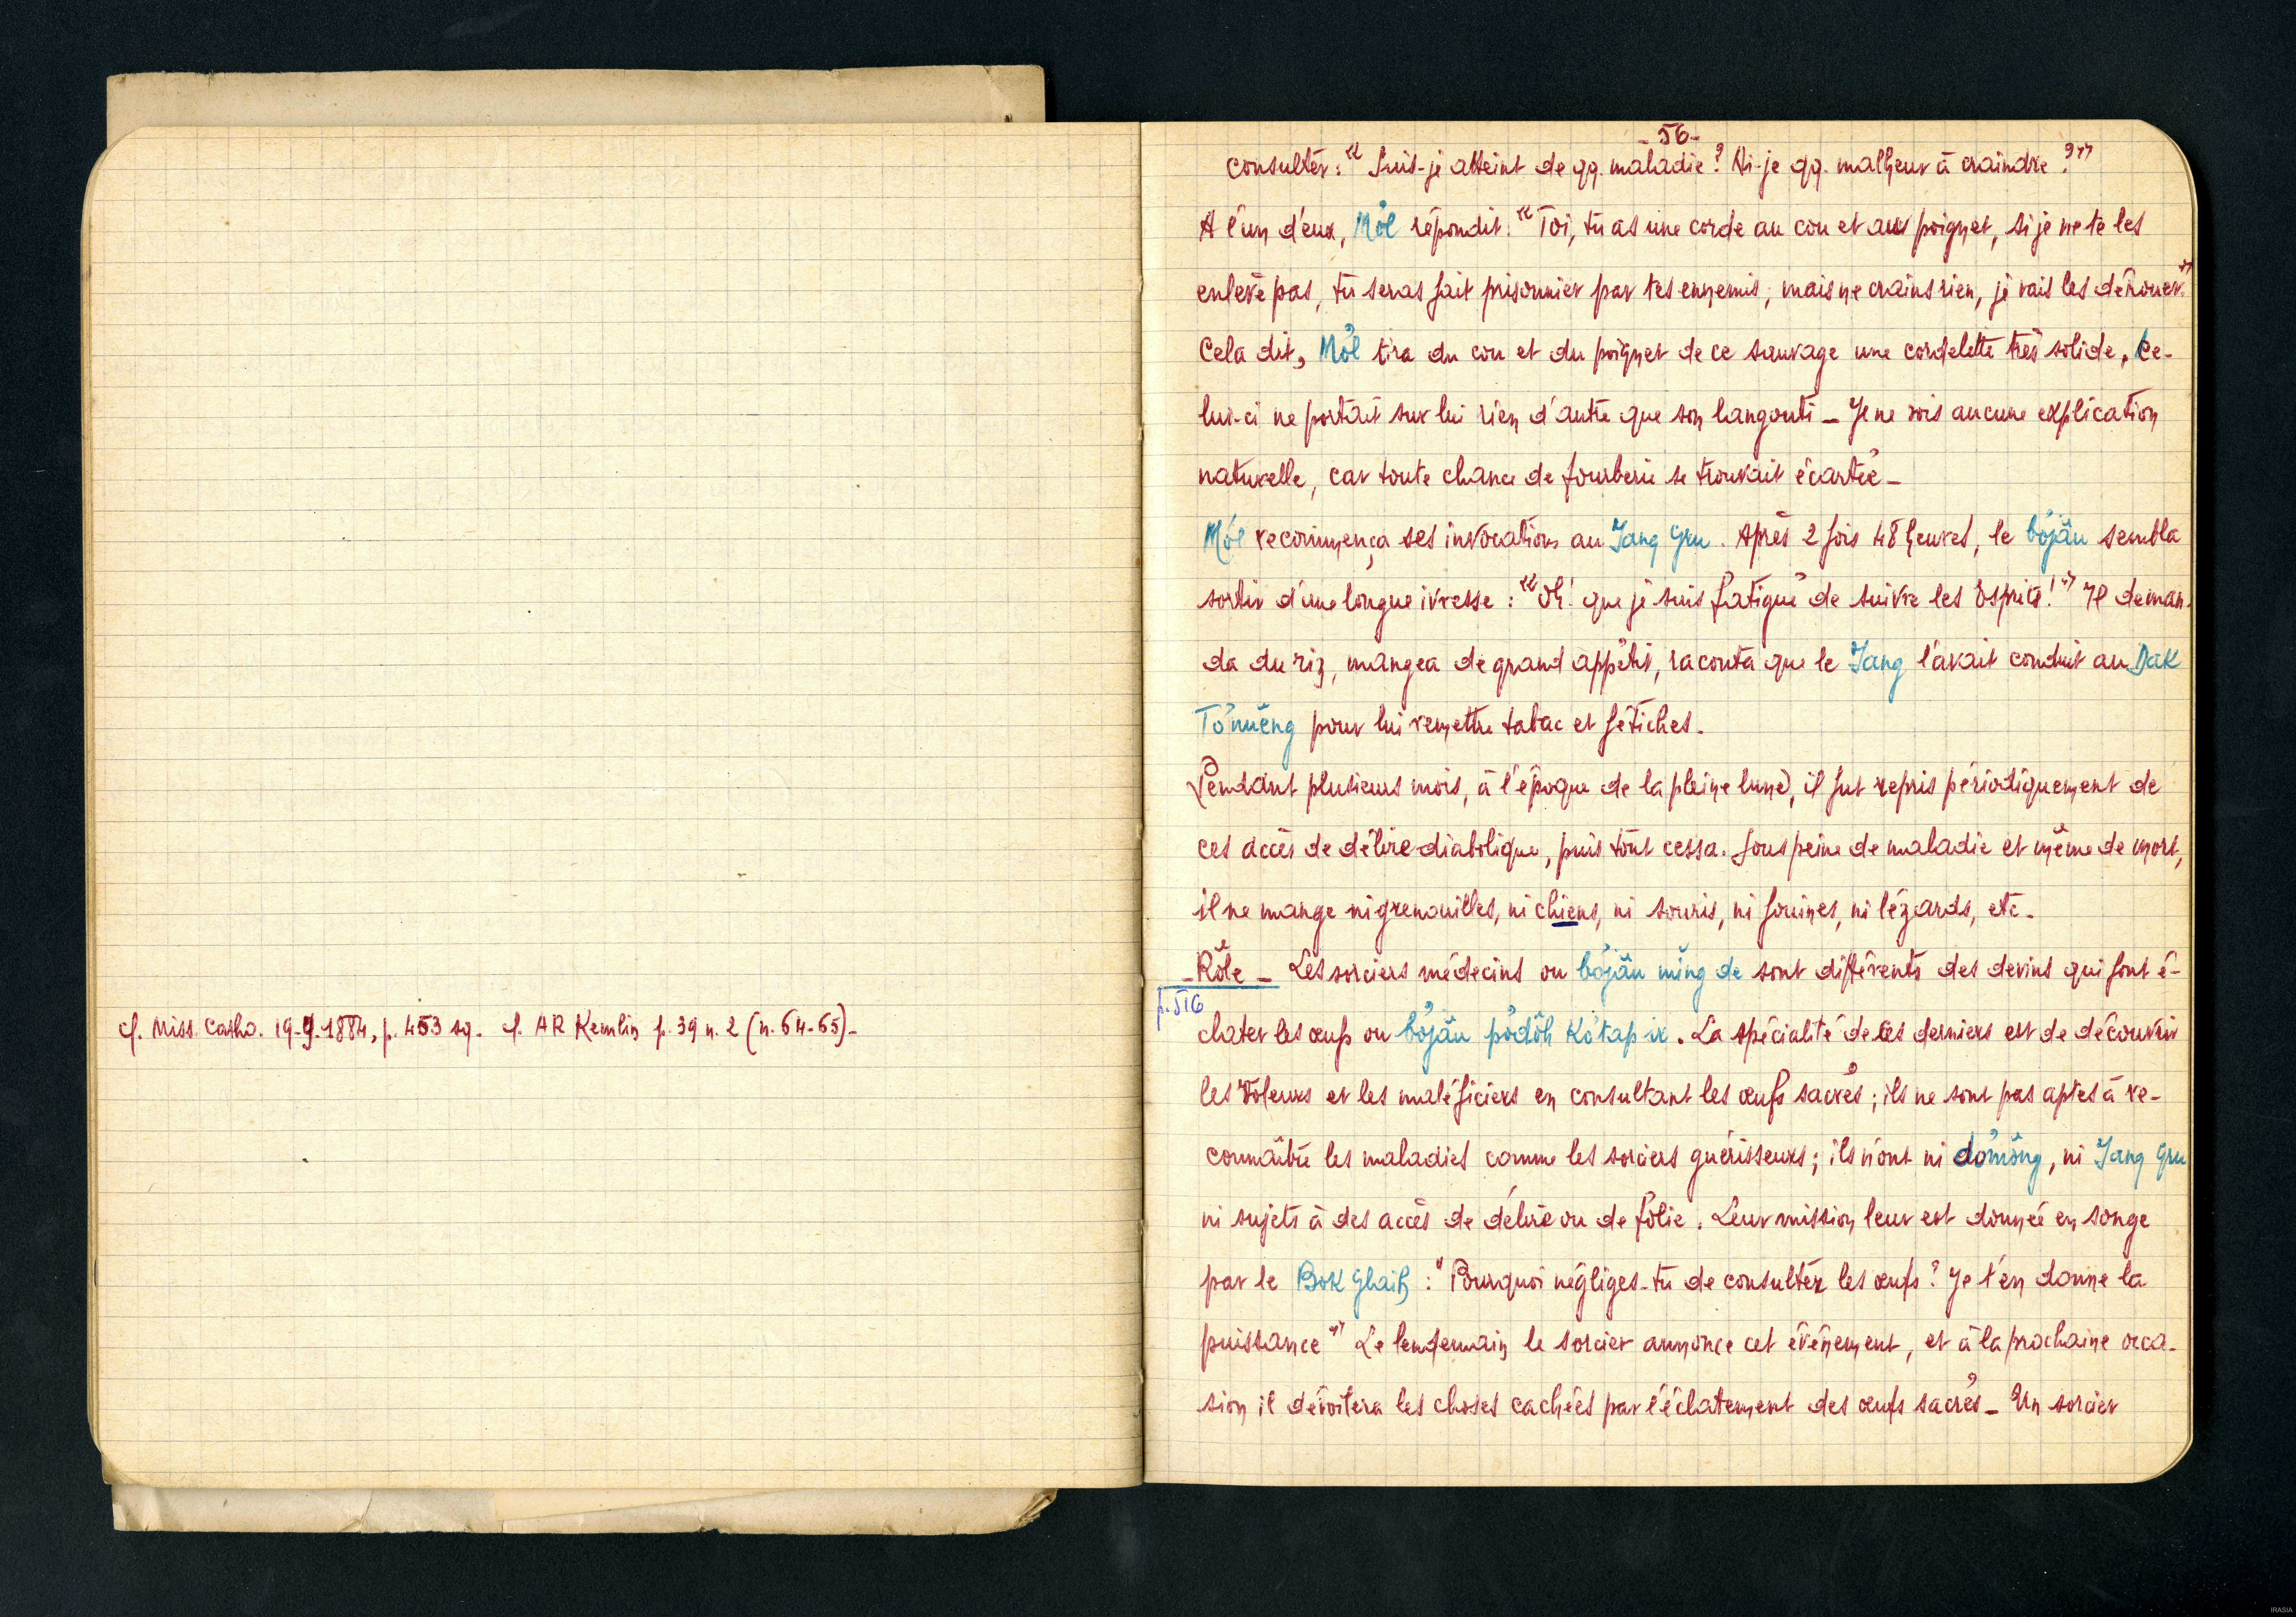 cf. Miss. Catho. 19-9-1884, p. 453 sq. cf. AR Kemlin p. 39 n. 2 (n. 64-65)-
- 56 -
consulter : « Suis-je atteint de qq. maladie ? Ai-je qq. malheur à craindre ? »
A l'un d'eux, Mŏl répondit : « Toi, tu as une corde au cou et au poignet, si je ne te les
enlève pas, tu seras fait prisonnier par tes ennemis ; mais ne crains rien, je vais les dénouer. »
Cela dit, Mŏl tira du cou et du poignet de ce sauvage une cordelette très solide. Ce-
lui-ci ne portait sur lui rien d'autre que son langouti - Je ne vois aucune explication
naturelle, car toute chance de fourberie se trouvait écartée -
Mŏl recommença ses invocations au Jang Gru. Après 2 fois 48 heures, le bơjâu sembla
sortir d'une longue ivresse : « Oh ! que je suis fatigué de suivre les Esprits ! » Il deman-
da du riz, mangea de grand appétit, raconta que le Jang l'avait conduit au Dak
Tơnuĕng pour lui remettre tabac et fétiches.
Pendant plusieurs mois, à l'époque de la pleine lune, il fut repris périodiquement de
ces accès de délire diabolique, puis tout cessa. Sous peine de maladie et même de mort,
il ne mange ni grenouilles, ni chiens, ni souris, ni fouines, ni lézards, etc.
- Rôle - Les sorciers médecins ou bơjâu ming de sont différents des devins qui font é-
p. 516
clater les œufs ou bơjâu pơdŏh kơtap ir. La spécialité de ces derniers est de découvrir
les voleurs et les maléficiers en consultant les œufs sacrés ; ils ne sont pas aptes à re-
connaître les maladies comme les sorciers guérisseurs ; ils n'ont ni dơmŏng, ni Jang Gru
ni sujets à des accès de délire ou de folie. Leur mission leur est donnée en songe
par le Bok Glaih : " Pourquoi négliges-tu de consulter les œufs ? Je t'en donne la
puissance » Le lendemain le sorcier annonce cet événement, et à la prochaine occa-
sion il dévoilera les choses cachées par l'éclatement des œufs sacrés - Un sorcier
IRASIA